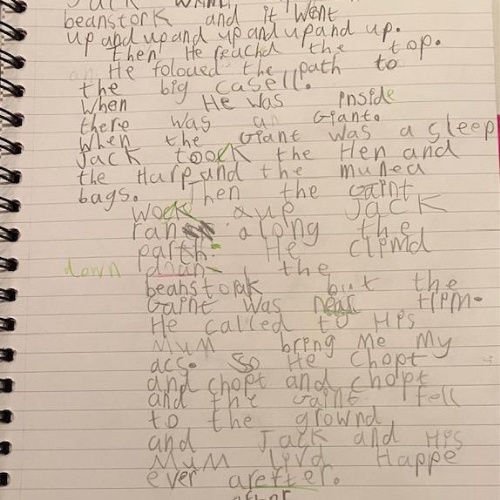 Jack
beanstork and it went
up and up and up and up and up.
then He reachd the top.
He foloued the path to
the big casell.
When He was inside
there was an Giant.
When the Giant was a sleep
Jack toock the Hen and
the Harp and the munea
bags. Then the Gaint
wock aup Jack
ran along the
parth. He climd
down doun the
beanstork but the
Gaint was near Him.
He called to His
Mum bring Me My
acs. So He chopt
and chopt and chopt
and the Gaint fell
to the grownd
and Jack and His
Mum livd Happe
ever arefter.
after